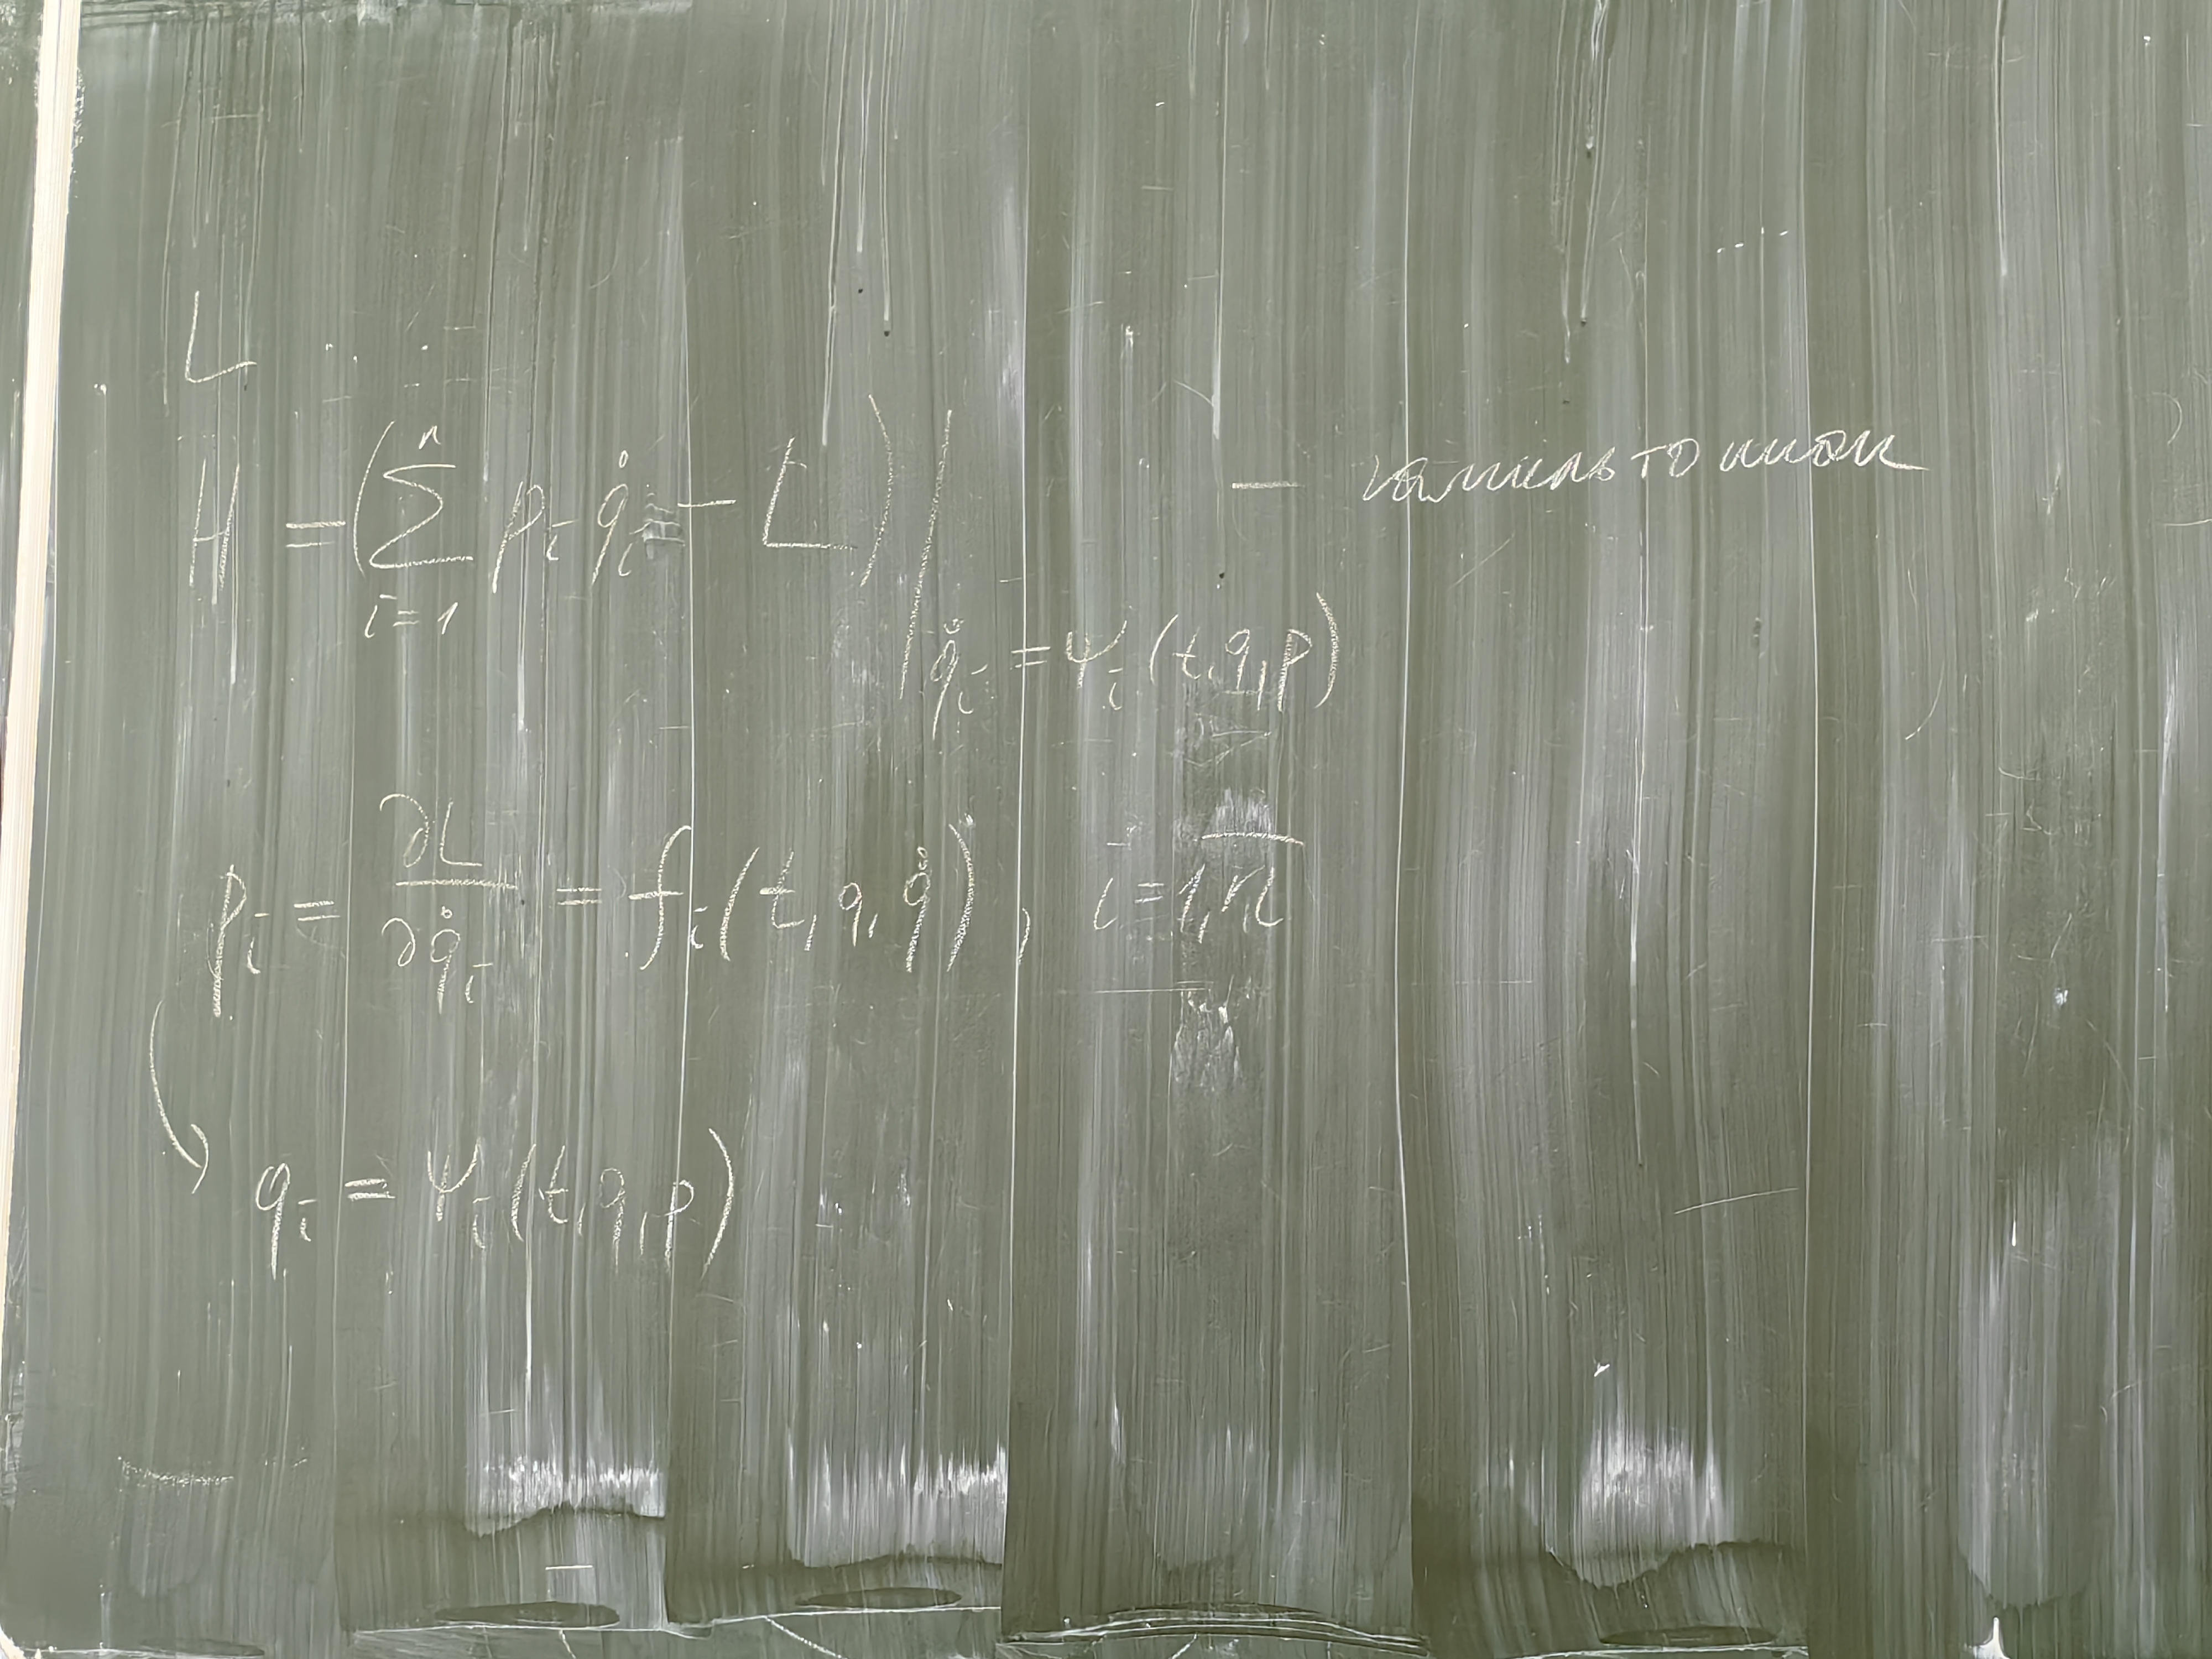 L
H = (∑ⁿᵢ₌₁ pᵢ q̇ᵢ − L)| q̇ᵢ = ψᵢ(t, q, p) — гамильтониан
pᵢ = ∂L/∂q̇ᵢ = fᵢ(t, q, q̇), i = 1,n̅
qᵢ = ψᵢ(t, q, p)